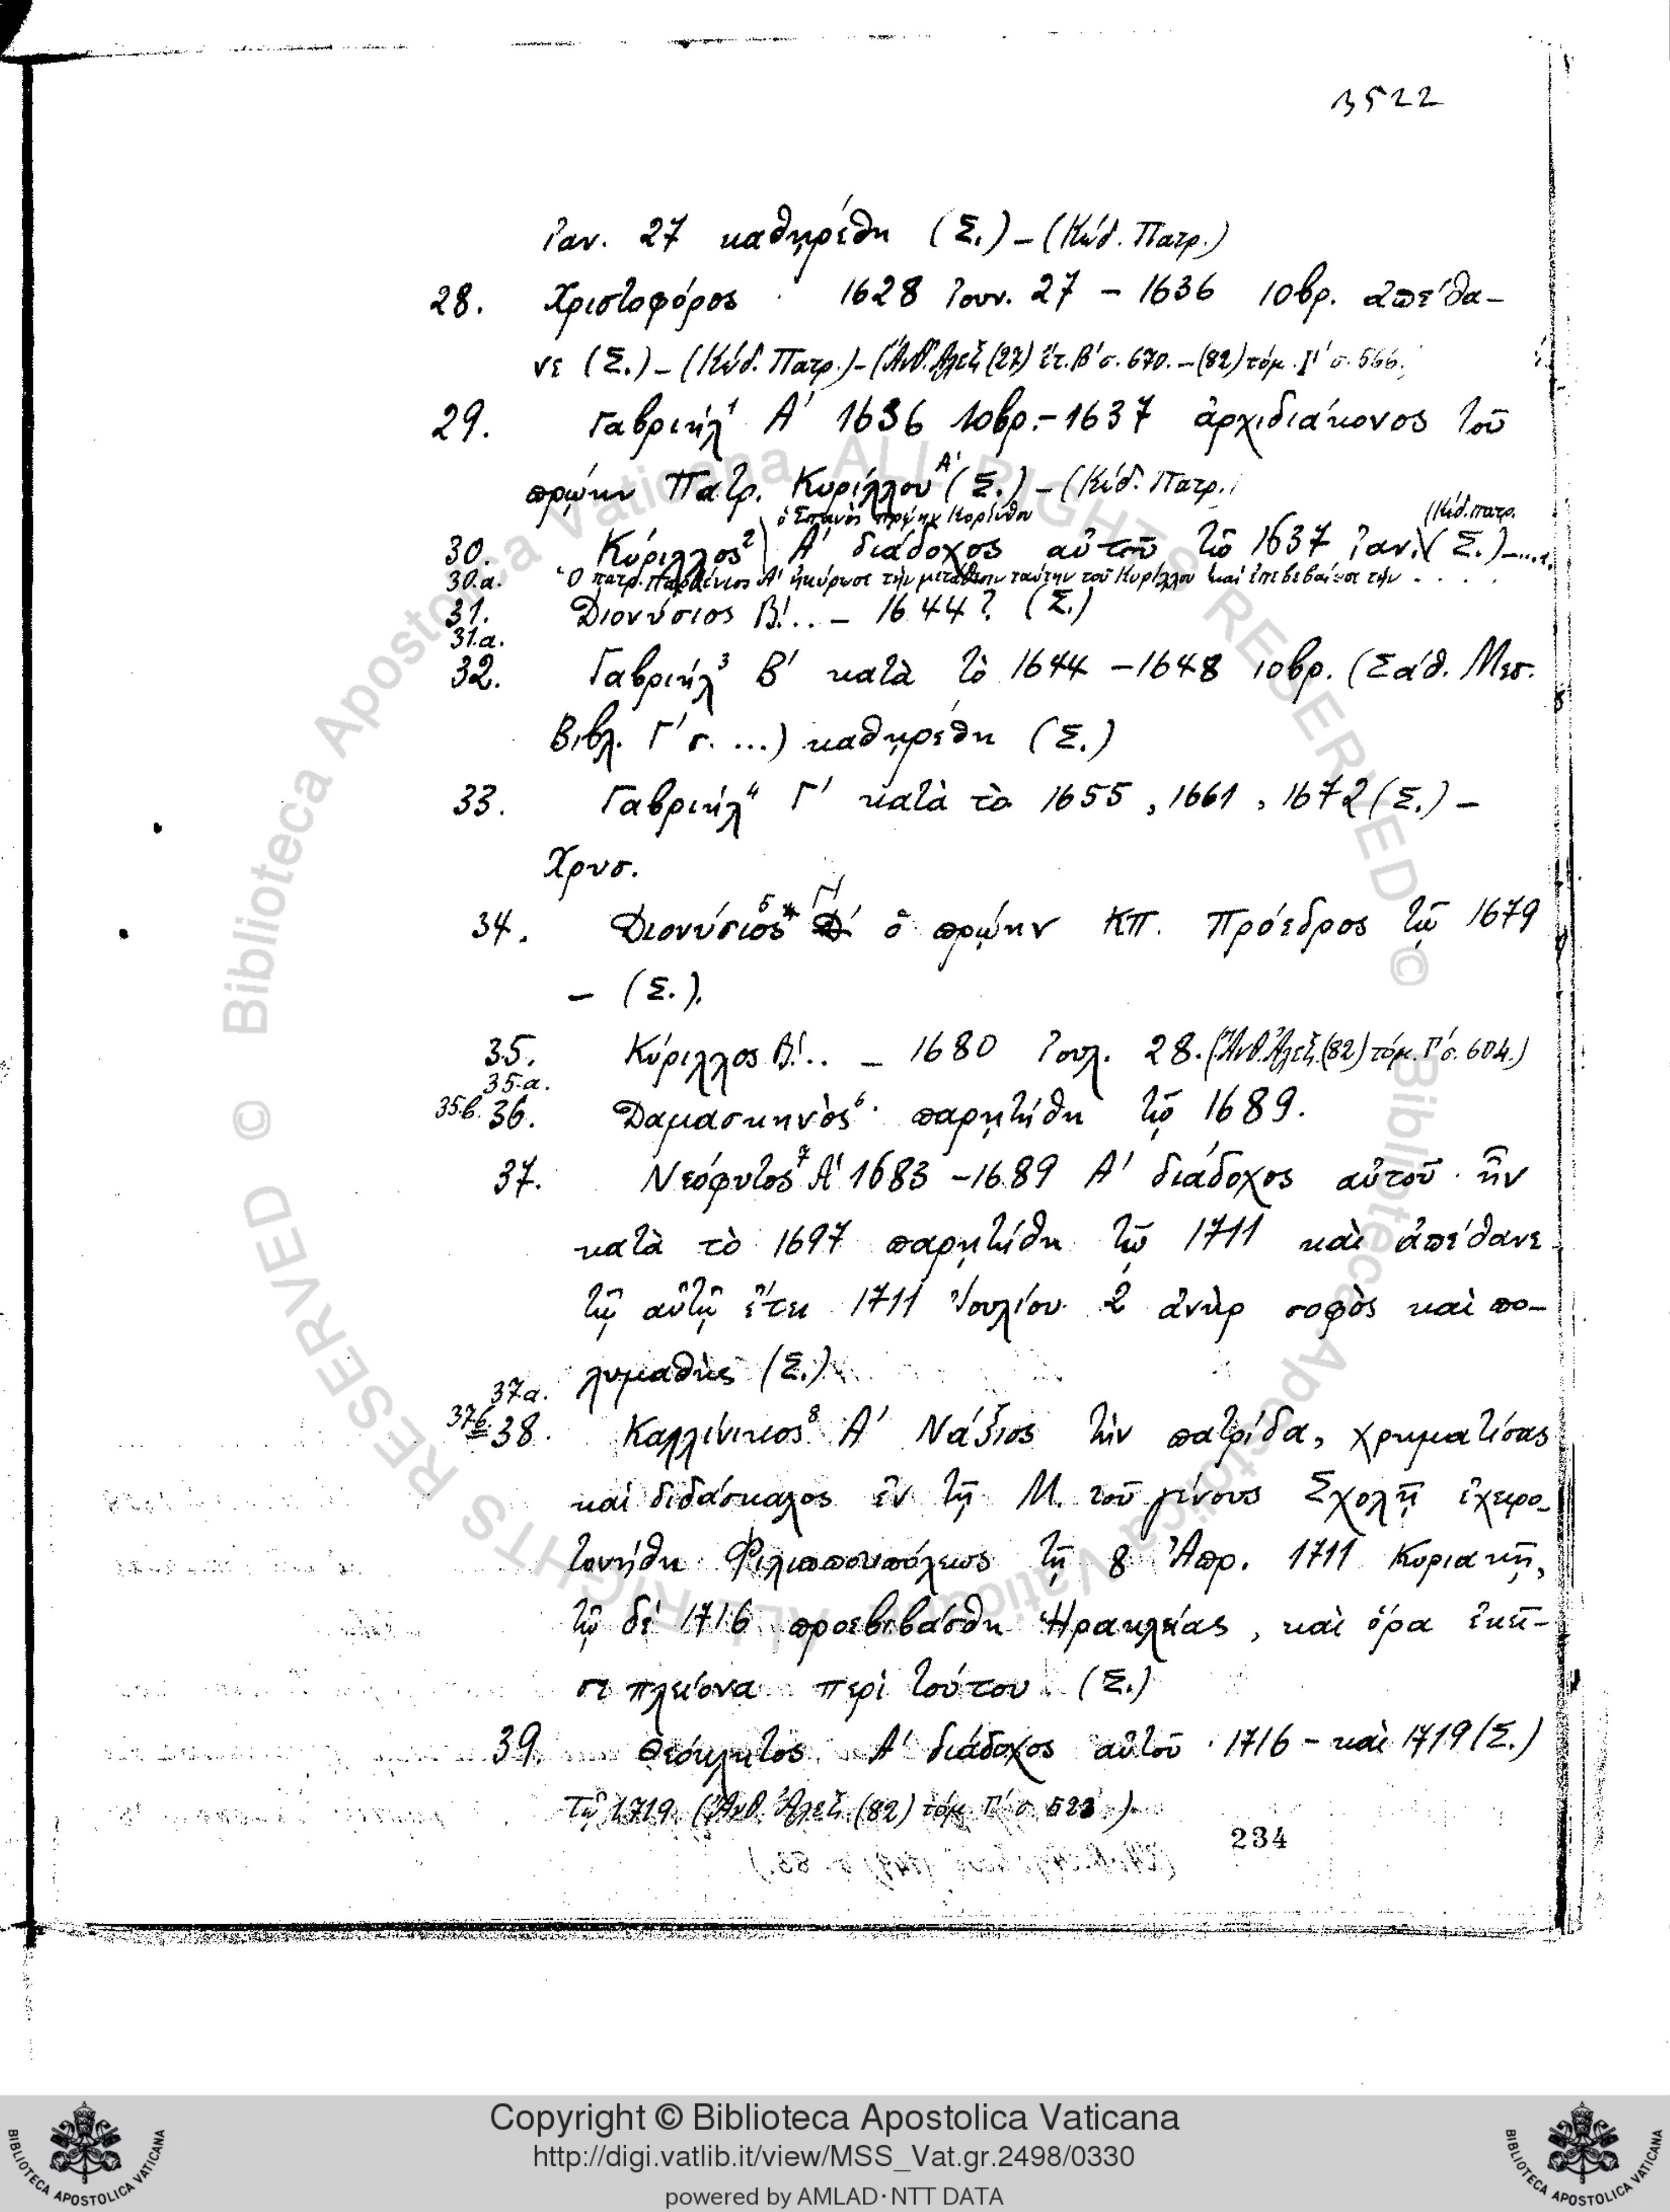 3522
Ἰαν. 27 καθῃρέθη (Σ.) – (Κώδ. Πατρ.)
28. Χριστοφόρος 1628 Ἰουν. 27 – 1636 10βρ. ἀπέθα-
νε (Σ.) – (Κώδ. Πατρ.) – (Ἀνθ. Ἀλεξ. (27) ἔτ. Β' σ. 670. – (82) τόμ. Γ' σ. 566.
29. Γαβριήλ¹ Α' 1636 10βρ. – 1637 ἀρχιδιάκονος τοῦ
πρώην Πατρ. Κυρίλλου Α' (Σ.) – (Κώδ. Πατρ.
ὁ Σπανὸς πρώην Κορίνθου (Κώδ. πατρ.
30. Κύριλλος² Α' διάδοχος αὐτοῦ τῷ 1637 Ἰαν. (Σ.) – ....
30.α. Ὁ πατρ. Παρθένιος Α' ἠκύρωσε τὴν μετάθεσιν ταύτην τοῦ Κυρίλλου καὶ ἐπεβεβαίωσε τὴν . . . .
31. Διονύσιος Β'. . – 1644? (Σ.)
31.α.
32. Γαβριήλ³ Β' κατὰ τὸ 1644 – 1648 10βρ. (Σάθ. Μεσ.
Βιβλ. Γ' σ. ...) καθῃρέθη (Σ.)
33. Γαβριήλ⁴ Γ' κατὰ τὸ 1655, 1661, 1672 (Σ.) –
Χρυσ.
34. Διονύσιος⁵* Γ' ὁ πρώην ΚΠ. Πρόεδρος τῷ 1679
– (Σ.).
35. Κύριλλος Β'. . – 1680 Ἰουλ. 28. (Ἀνθ. Ἀλεξ. (82) τόμ. Γ' σ. 604.)
35.α.
35.β. 36. Δαμασκηνὸς⁶ παρῃτήθη τῷ 1689.
37. Νεόφυτος⁷ Α' 1683 – 1689 Α' διάδοχος αὐτοῦ ἦν
κατὰ τὸ 1697 παρῃτήθη τῷ 1711 καὶ ἀπέθανε
τῷ αὐτῷ ἔτει 1711 Ἰουλίου 2 ἀνὴρ σοφὸς καὶ πο-
λυμαθὴς (Σ.)
37α.
37β. 38. Καλλίνικος⁸ Α' Νάξιος τὴν πατρίδα, χρηματίσας
καὶ διδάσκαλος ἐν τῇ Μ. τοῦ γένους Σχολῇ ἐχειρο-
τονήθη Φιλιππουπόλεως τῇ 8 Ἀπρ. 1711 Κυριακῇ,
τῷ δὲ 1716 προεβιβάσθη Ἡρακλείας, καὶ ὅρα ἐκεῖ-
σε πλείονα περὶ τούτου (Σ.)
39. Θεόκλητος Α' διάδοχος αὐτοῦ 1716 – καὶ 1719 (Σ.)
Τῷ 1719 (Ἀνθ. Ἀλεξ. (82) τόμ. Γ' σ. 523)
234
© Biblioteca Apostolica Vaticana ALL RIGHTS RESERVED © Biblioteca Apostolica Vaticana ALL RIGHTS RESERVED
Copyright © Biblioteca Apostolica Vaticana
http://digi.vatlib.it/view/MSS_Vat.gr.2498/0330
powered by AMLAD·NTT DATA
BIBLIOTECA APOSTOLICA VATICANA
BIBLIOTECA APOSTOLICA VATICANA